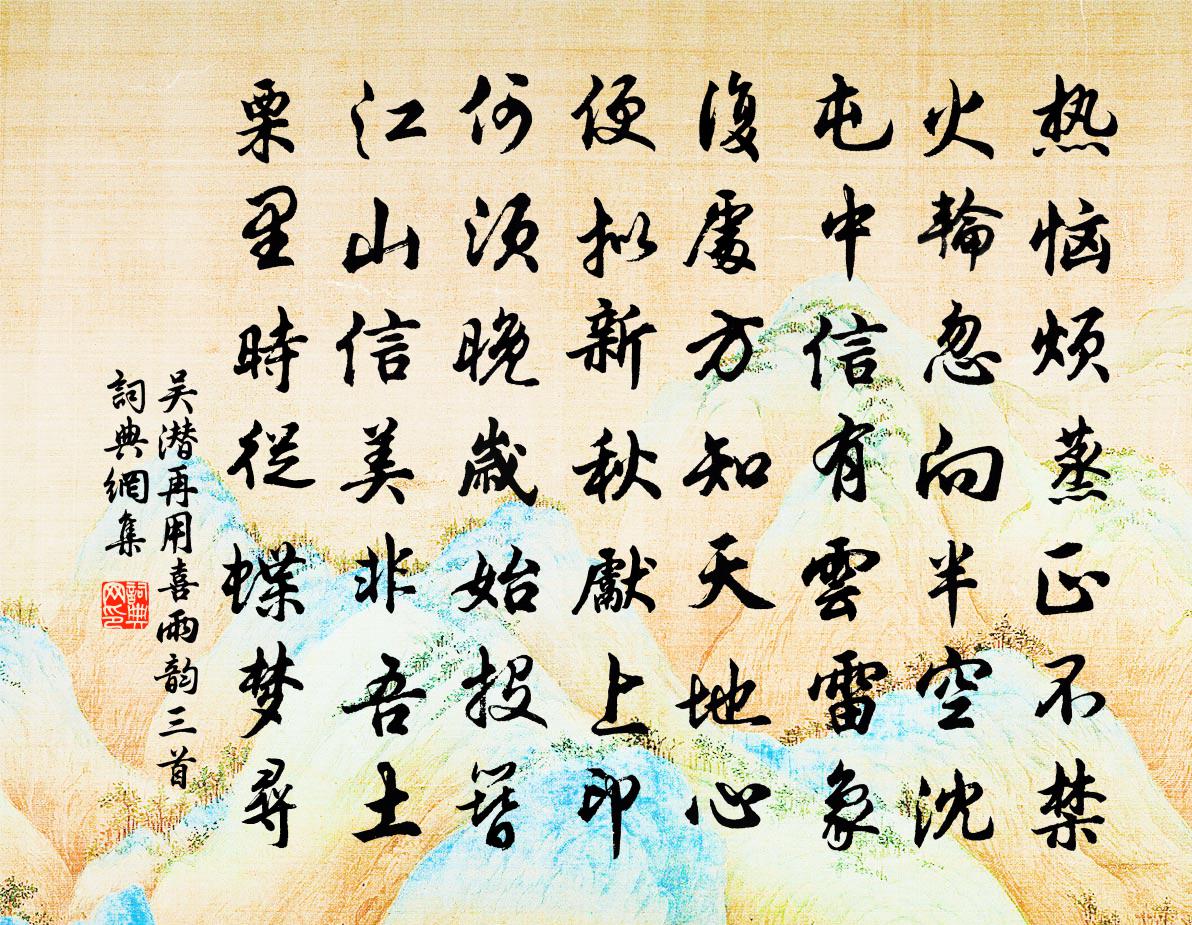 热恼烦蒸正不禁
火輪忽向半空沈
屯中信有雲雷象
復處方知天地心
便拟新秋獻上印
何须晚歲始投簪
江山信美非吾土
栗里時從蝶梦尋
吴潜再用喜雨韵三首
詞典網集
詞典